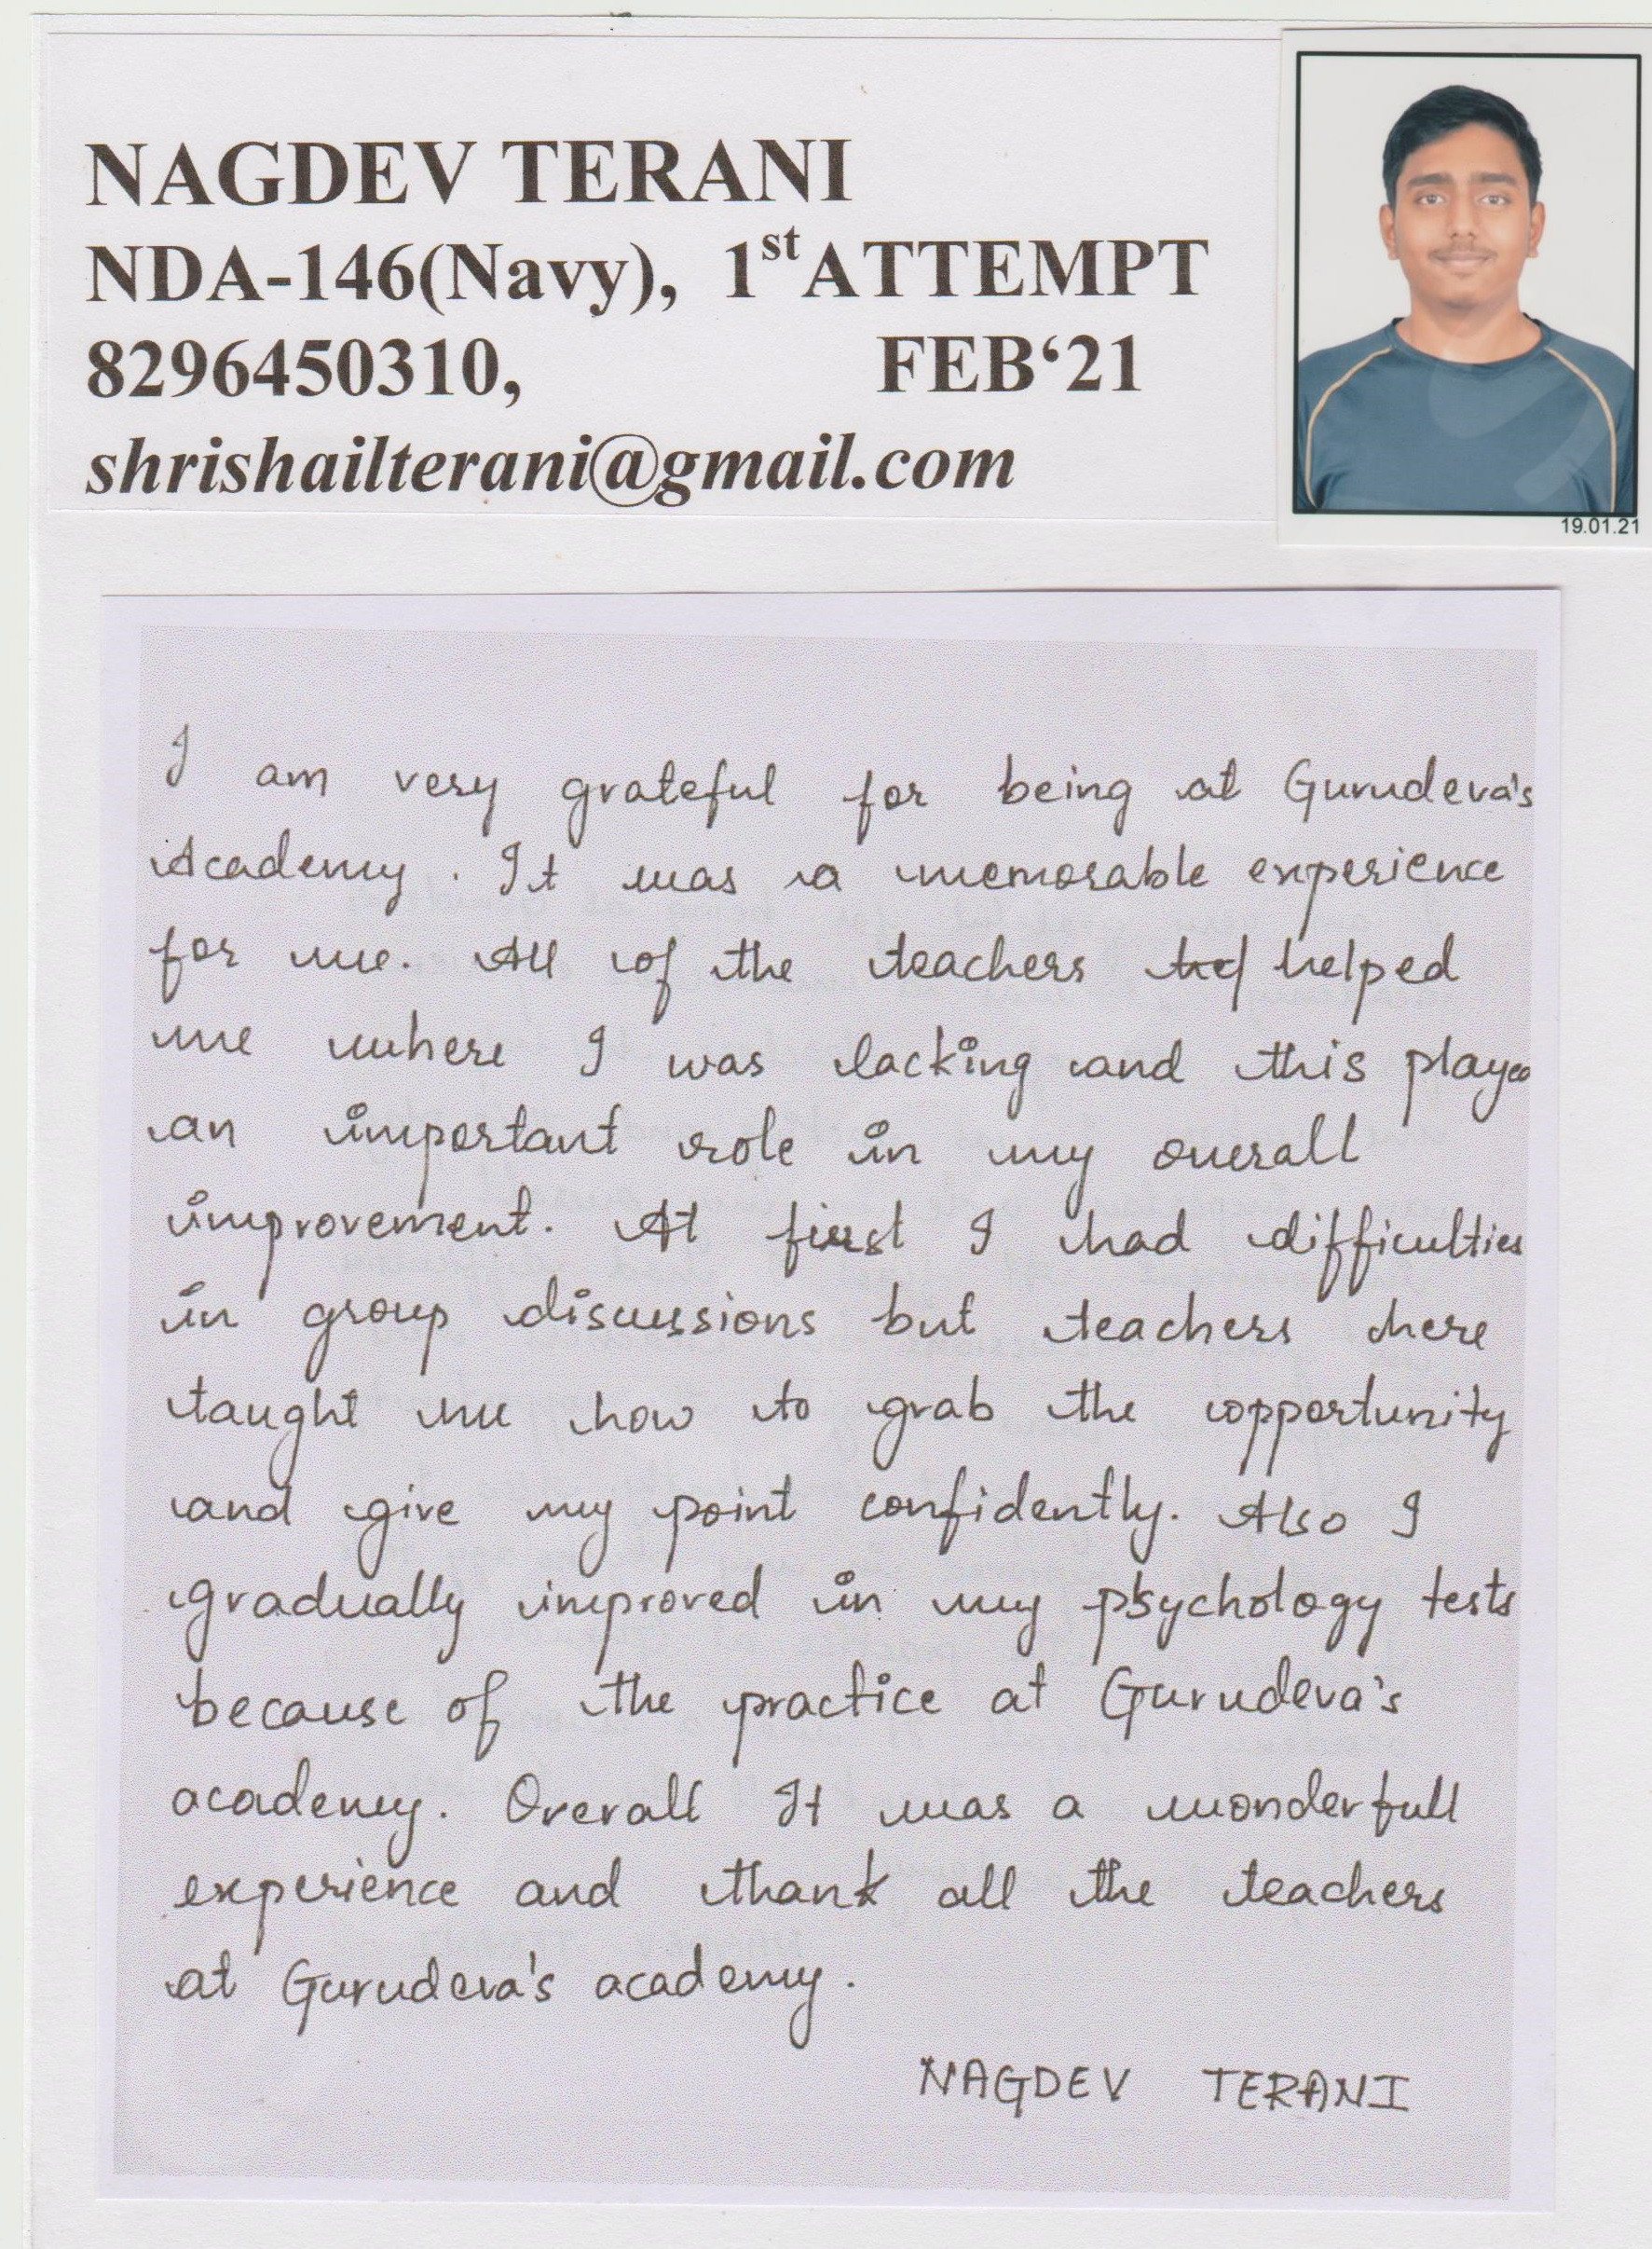 NAGDEV TERANI
NDA-146(Navy), 1st ATTEMPT
8296450310, FEB‘21
shrishailterani@gmail.com
19.01.21
I am very grateful for being at Gurudeva's
Academy. It was a memorable experience
for me. All of the teachers helped
me where I was lacking and this played
an important role in my overall
improvement. At first I had difficulties
in group discussions but teachers here
taught me how to grab the opportunity
and give my point confidently. Also I
gradually improved in my psychology tests
because of the practice at Gurudeva's
academy. Overall It was a wonderfull
experience and thank all the teachers
at Gurudeva's academy.
NAGDEV TERANI